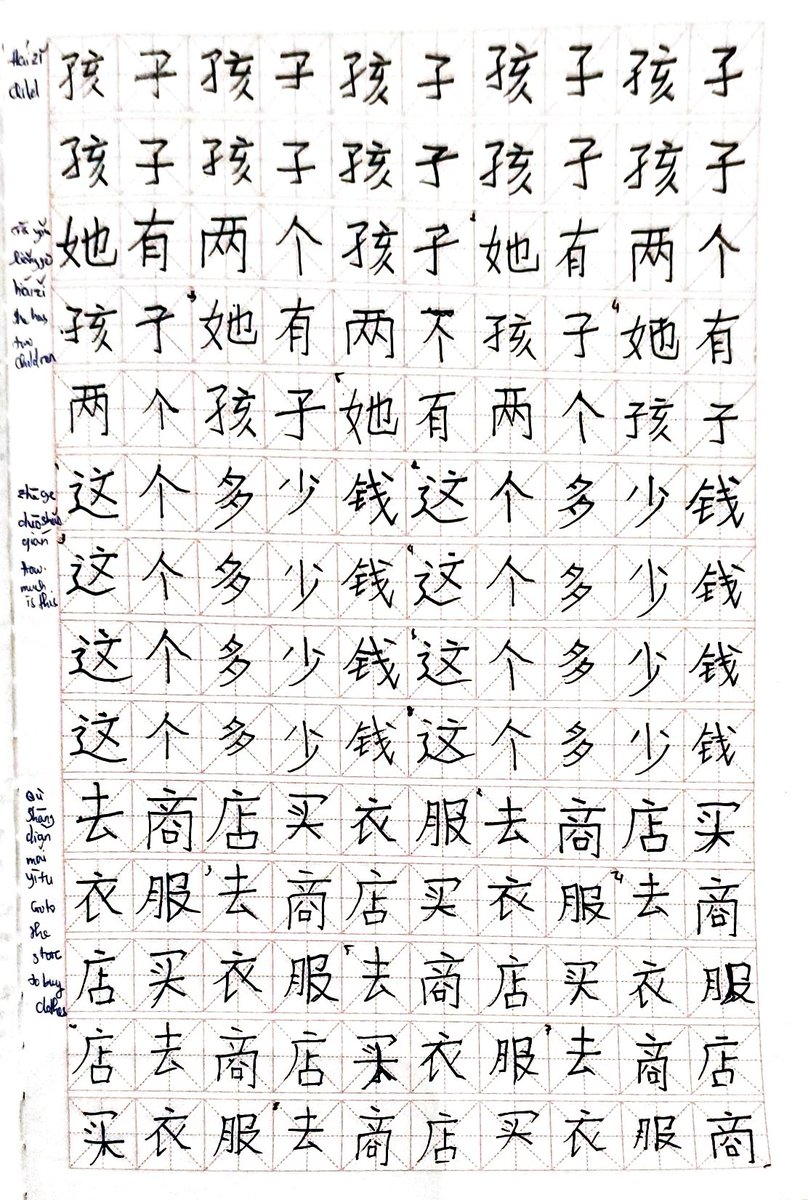 Háizǐ 孩子孩子孩子孩子孩子
child
孩子孩子孩子孩子孩子
她有两个孩子 2 她有两个
háizǐ
she has
two
children
孩子 3 她有两个孩子 4 她有
两个孩子 5 她有两个孩子
1 这个多少钱 2 这个多少钱
how
much
is this
3 这个多少钱 4 这个多少钱
这个多少钱 6 这个多少钱
这个多少钱 8 这个多少钱
去商店买衣服 2 去商店买
Qù
shāng
diàn
mǎi
Go to
the
store
to buy
clothes
衣服 3 去商店买衣服 4 去商
店买衣服 5 去商店买衣服
店去商店买衣服 7 去商店
买衣服 8 去商店买衣服商